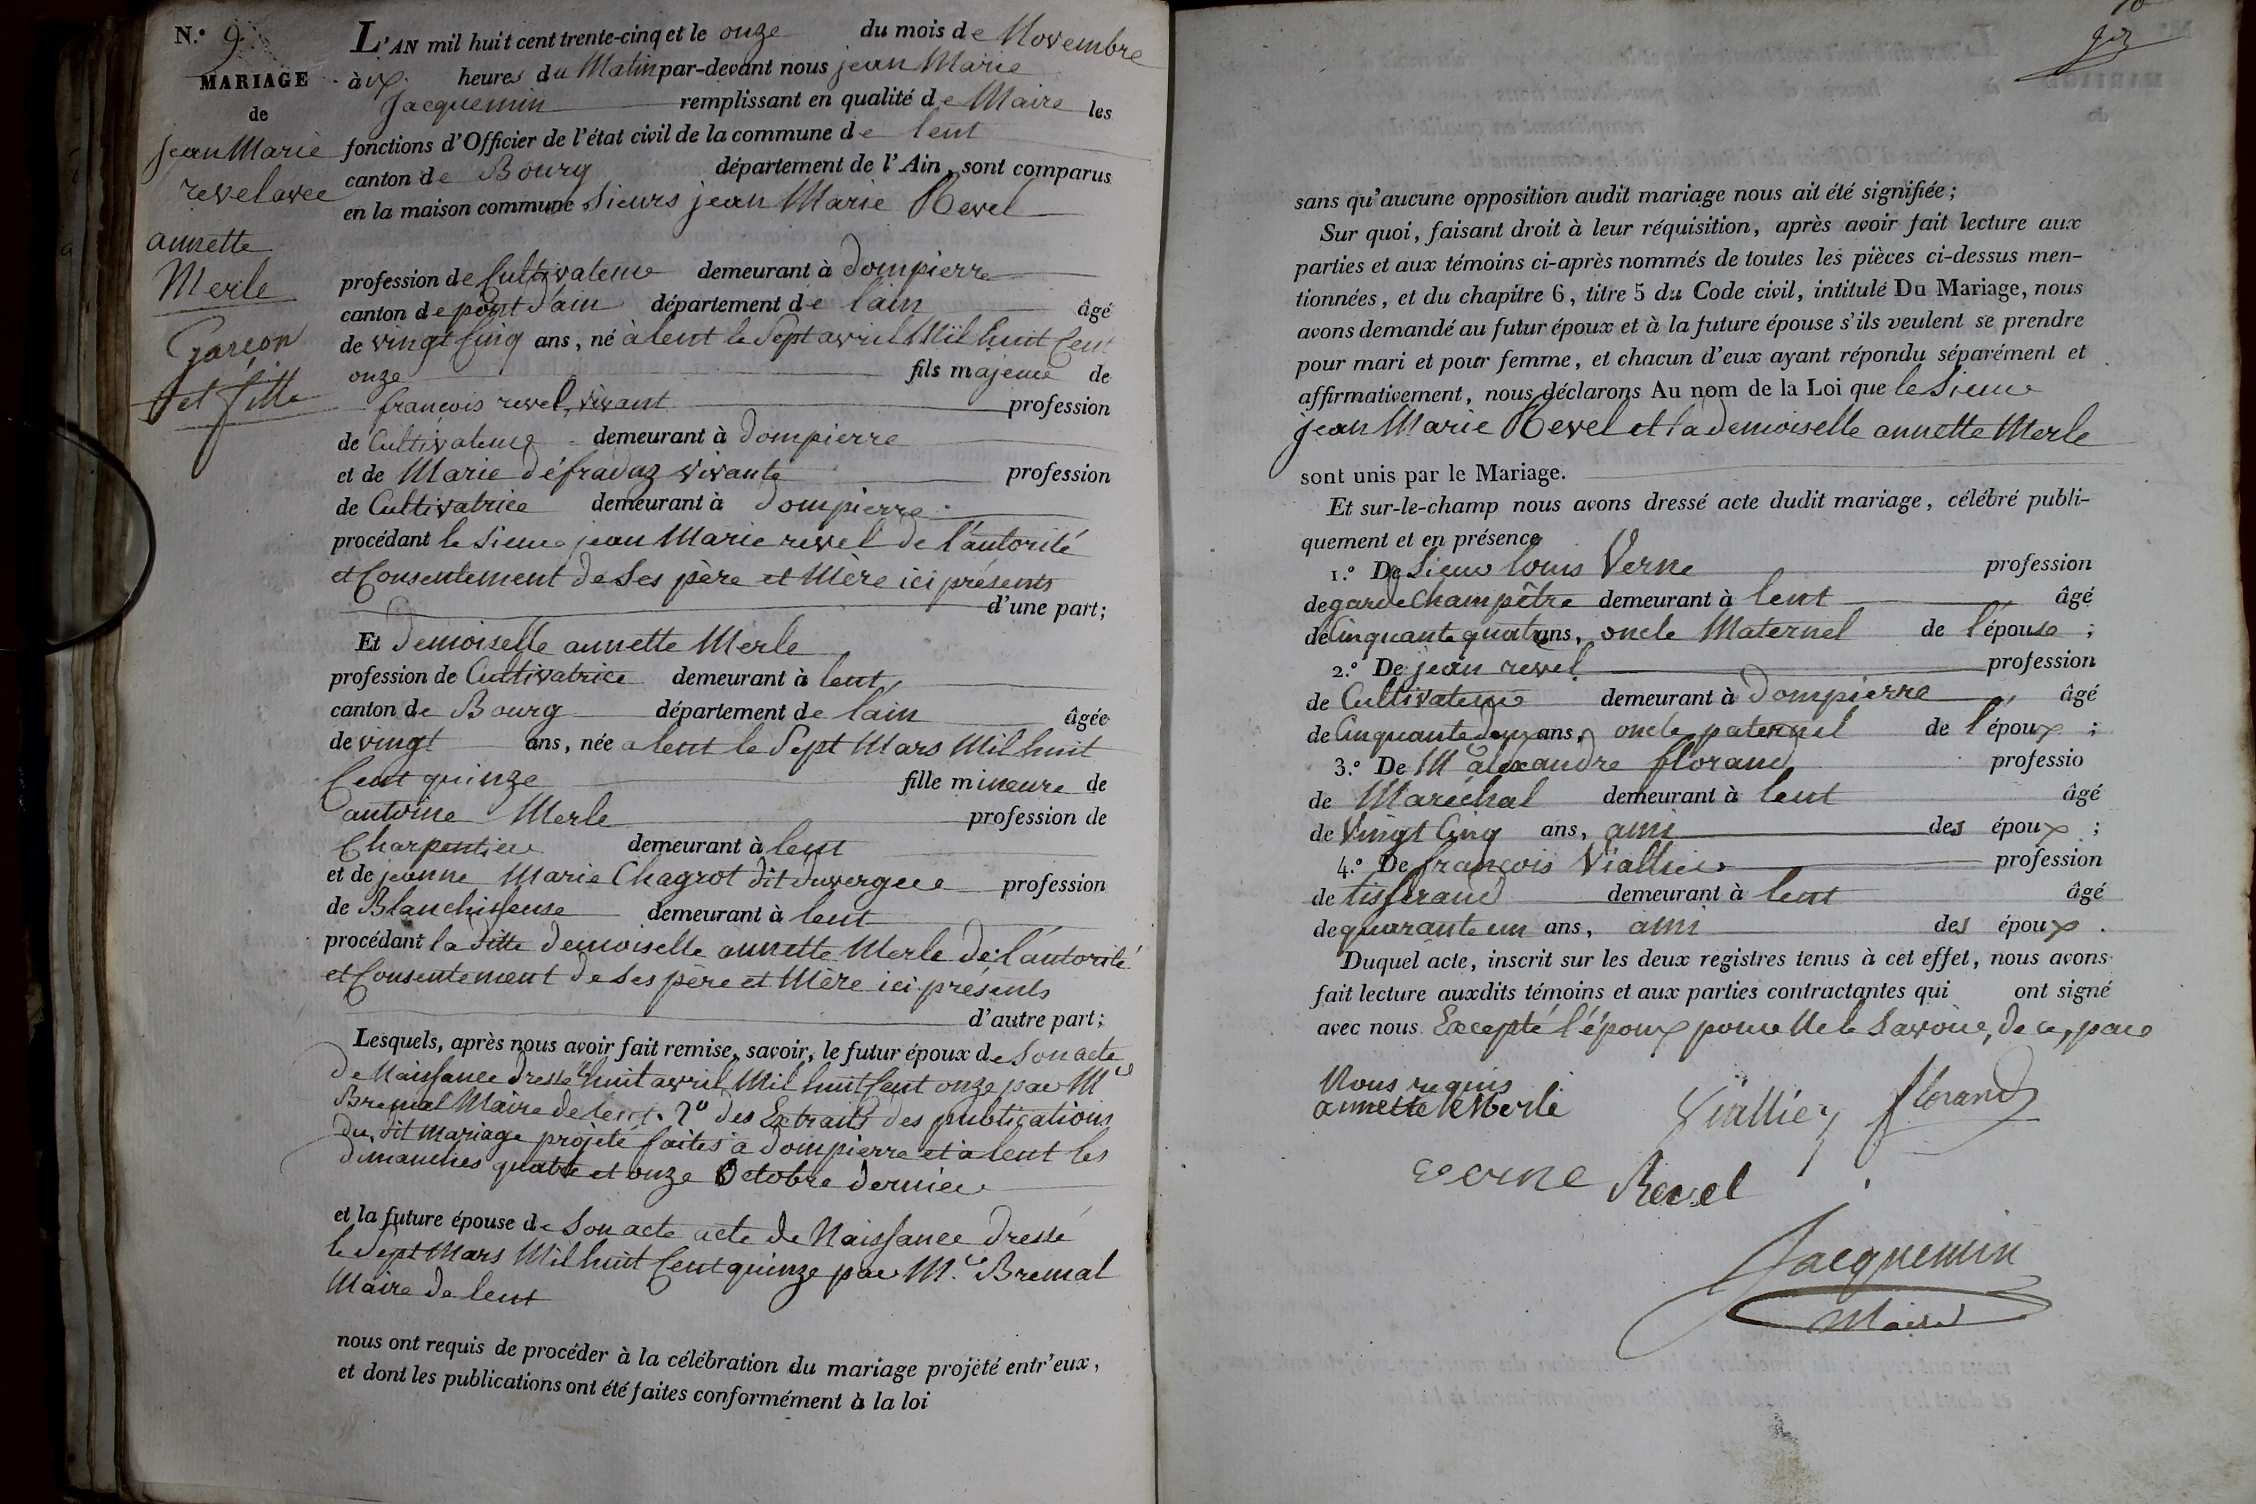 N.º 9.
MARIAGE
de
jean Marie
revel avec
annette
Merle
Garçon
et fille
L'AN mil huit cent trente-cinq et le onze du mois de Novembre
à dix heures du Matin par-devant nous jean Marie
Jacquemin remplissant en qualité de Maire les
fonctions d'Officier de l'état civil de la commune de lent
canton de Bourg département de l'Ain, sont comparus
en la maison commune Sieurs jean Marie Revel
profession de Cultivateur demeurant à dompierre
canton de pont d'ain département de l'ain âgé
de vingt Cinq ans, né à lent le Sept avril Mil huit Cent
onze fils majeur de
françois revel, vivant profession
de Cultivateur demeurant à dompierre
et de Marie défradaz vivante profession
de Cultivatrice demeurant à dompierre
procédant le Sieur jean Marie revel de l'autorité
et Consentement de Ses père et Mère ici présents
d'une part;
Et Demoiselle annette Merle
profession de Cultivatrice demeurant à lent
canton de Bourg département de l'ain âgée
de vingt ans, née a lent le Sept Mars Mil huit
Cent quinze fille mineure de
antoine Merle profession de
Charpentier demeurant à lent
et de jeanne Marie Chagrot dit duvergée profession
de Blanchisseuse demeurant à lent
procédant la ditte demoiselle annette Merle de l'autorité
et Consentement de Ses père et Mère ici présents
d'autre part;
Lesquels, après nous avoir fait remise, savoir, le futur époux de Son acte
de Naissance dressé le huit avril Mil huit Cent onze par Mr
Bremal Maire de lent. 2º des Extraits des publications
du dit mariage projeté faites à dompierre et à lent les
dimanches quatre et onze Octobre dernier
et la future épouse de Son acte acte de Naissance dressé
le Sept Mars Mil huit Cent quinze par M.r Bremal
Maire de lent
nous ont requis de procéder à la célébration du mariage projeté entr'eux,
et dont les publications ont été faites conformément à la loi
10
sans qu'aucune opposition audit mariage nous ait été signifiée;
Sur quoi, faisant droit à leur réquisition, après avoir fait lecture aux
parties et aux témoins ci-après nommés de toutes les pièces ci-dessus men-
tionnées, et du chapitre 6, titre 5 du Code civil, intitulé Du Mariage, nous
avons demandé au futur époux et à la future épouse s'ils veulent se prendre
pour mari et pour femme, et chacun d'eux ayant répondu séparément et
affirmativement, nous déclarons Au nom de la Loi que le Sieur
jean Marie Revel et la demoiselle annette Merle
sont unis par le Mariage.
Et sur-le-champ nous avons dressé acte dudit mariage, célébré publi-
quement et en présence
1.º De Sieur louis Verne profession
de garde Champêtre demeurant à lent âgé
de Cinquante quatre ans, oncle Maternel de l'épouse;
2.º De jean revel profession
de Cultivateur demeurant à dompierre âgé
de Cinquante deux ans, oncle paternel de l'époux;
3.º De M alexandre florand professio
de Maréchal demeurant à lent âgé
de Vingt Cinq ans, ami des époux;
4.º De françois Viallier profession
de tisserand demeurant à lent âgé
de quarante un ans, ami des époux.
Duquel acte, inscrit sur les deux registres tenus à cet effet, nous avons
fait lecture auxdits témoins et aux parties contractantes qui ont signé
avec nous Excepté l'époux pour Ne le Savoir, de ce, par
Nous requis
annette Merle Viallier florand
verne Revel
Jacquemin
Maire